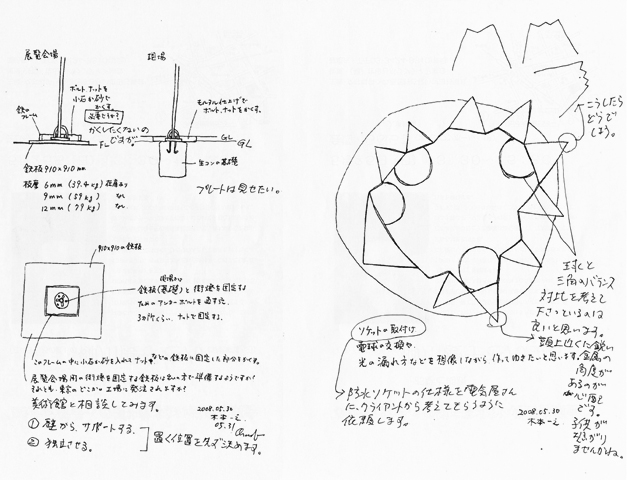 展覧会場
現場
ボルト、ナットを
小石か砂で
かくす。
必要ですか?
かくしたくないの
ですが。
鉄の
フレーム
FL
鉄板 910×910 mm
板厚 6mm (39.4kg) 在庫あり
9mm (59kg) なし
12mm (79kg) なし
モルタル仕上げで
ボルト、ナットをかくす。
GL
GL
生コンの基礎
プレートは見せたい。
910×910の鉄板
現場から
鉄板(基礎)と街燈を固定する
ためのアンカーボルトを通す穴
3ヵ所くらい。ナットで固定する。
このフレームの中に小石か砂を入れてナット
などの鉄板に固定した部分をかくす。
展覧会場用の街燈を固定する鉄板は私の方で準備するようですか?
それとも、東京のどこかの工場に発注されますか?
美術館と相談してみます。
2008.05.30
05.31
① 壁から、サポートする。
② 独立させる。
置く位置を先ず決めます。
こうしたら
どうで
しょう。
球と
三角のバランス
対比を考えて
下さっているのは
良いと思います。
頭上近くに鋭い
金属の
角度が
あるのが
心配
です。
子供が
ませんかね。
ソケットの取付け
電球の交換や
光の漏れ方などを想像しながら作って頂きたいと思います。
防水ソケットの仕様を電気屋さん
に、クライアントから考えてもらうように
依頼します。
2008.05.30